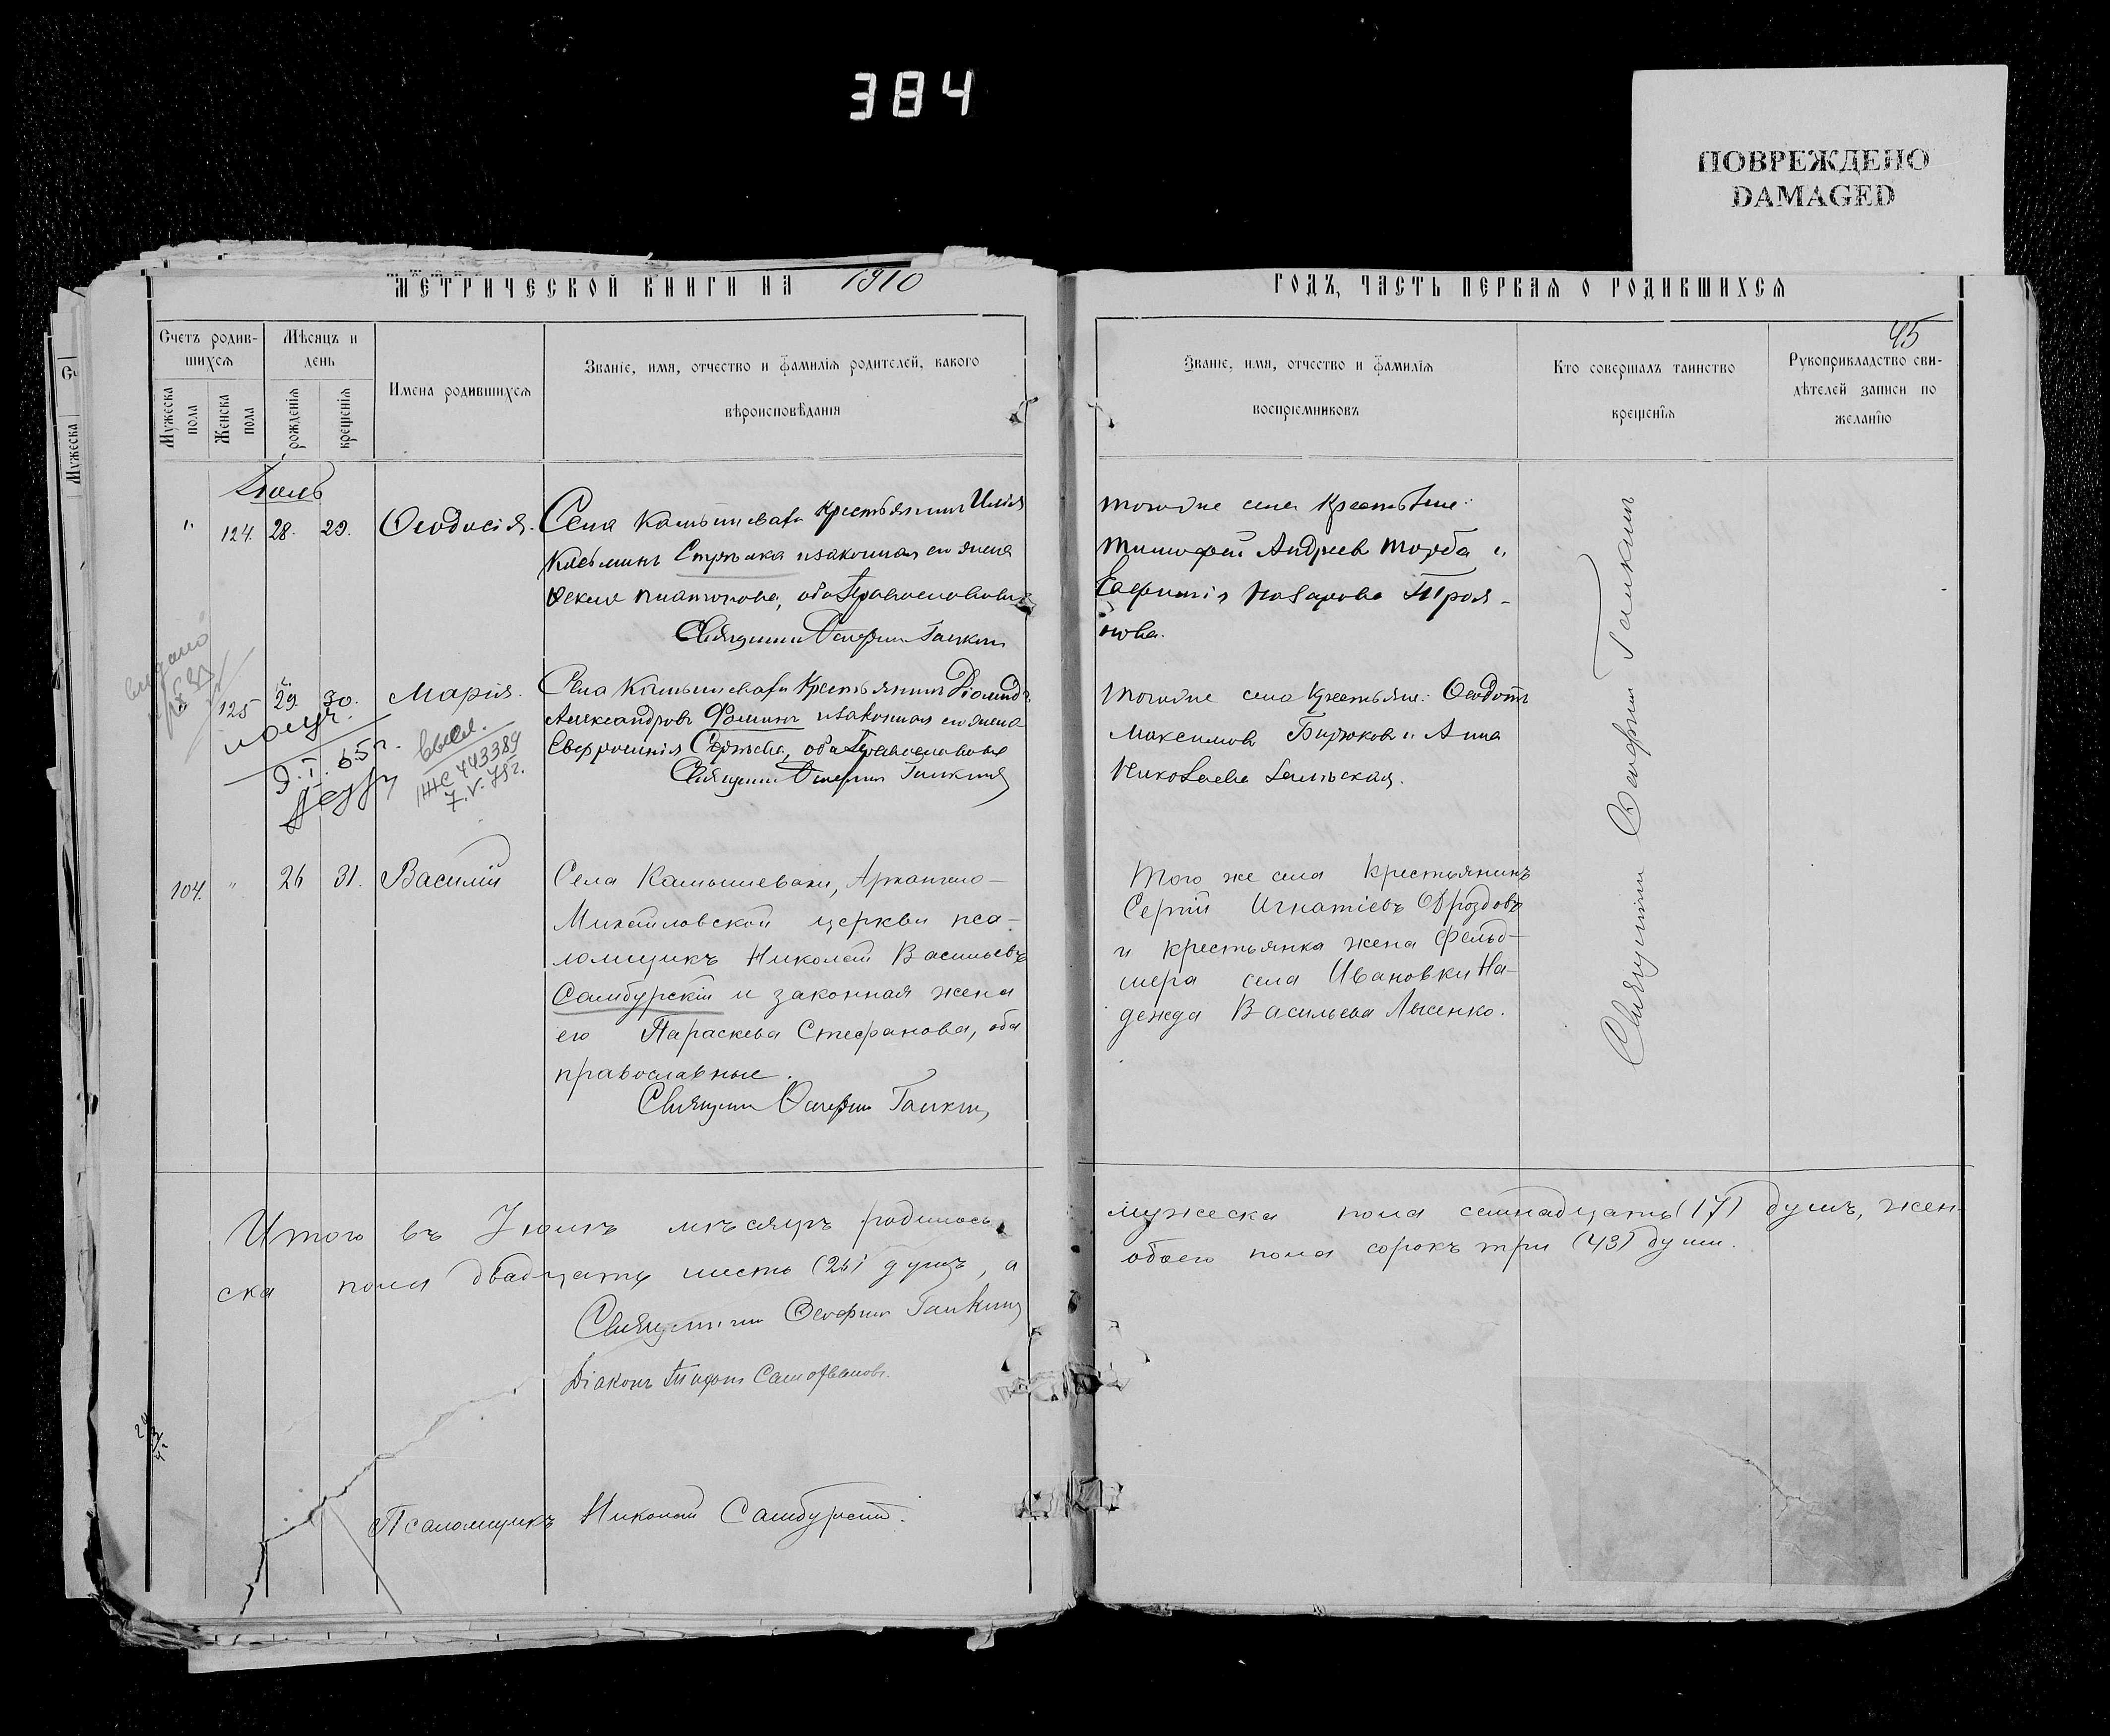 384
ПОВРЕЖДЕНО
DAMAGED
МЕТРИЧЕСКОЙ КНИГИ НА 1910
ГОДЪ, ЧАСТЬ ПЕРВАЯ О РОДИВШИХСЯ
45
Счетъ родив-
шихся
Мужеска
пола
Женска
пола
Мѣсяцъ и
день
рожденія
крещенія
Имена родившихся
Званіе, имя, отчество и фамилія родителей, какого
вѣроисповѣданія
Званіе, имя, отчество и фамилія
воспріемниковъ
Кто совершалъ таинство
крещенія
Рукоприкладство сви-
дѣтелей записи по
желанію
Мужеска
Іюль
" 124. 28. 29. Ѳеодосія.
Села Камышевахи крестьянинъ Илія
Козьминъ и законная его жена
Платонова, оба Православные
Священникъ Ѳеофилъ Галкинъ
Тогоже села Крестьяне:
Тимофей Андреев Торба и
Евфимія Назарова Троя-
нова.
125 29. 30. Марія.
Села Камышевахи Крестьянинъ Діомидъ
Александровъ Фоминъ и законная его жена
Евфросинія Сергѣева, оба Православные
Священникъ Ѳеофилъ Галкинъ
Тогоже села Крестьяне: Ѳеодотъ
Максимов Бирюков и Анна
Николаева
9. I. 65 г.
443389
7. V. 75г.
104. " 26 31. Василій
Села Камышевахи, Архангело-
Михайловской церкви пса-
ломщикъ Николай Васильевъ
Самбурскій и законная жена
его Параскева Стефанова, оба
православные.
Священникъ Ѳеофилъ Галкинъ
Того же села крестьянинъ
Сергій Игнатіевъ Дроздовъ
и крестьянка жена фельд-
шера села Ивановки На-
дежда Васильева Лысенко.
Священникъ Ѳеофилъ Галкинъ
Итого въ Іюлѣ мѣсяцѣ родилось
мужеска пола семнадцать (17) душъ, жен-
ска пола двадцать шесть (26) душъ, а
обоего пола сорокъ три (43) души.
Священникъ Ѳеофилъ Галкинъ
Діаконъ
Псаломщикъ Николай Самбурскій.